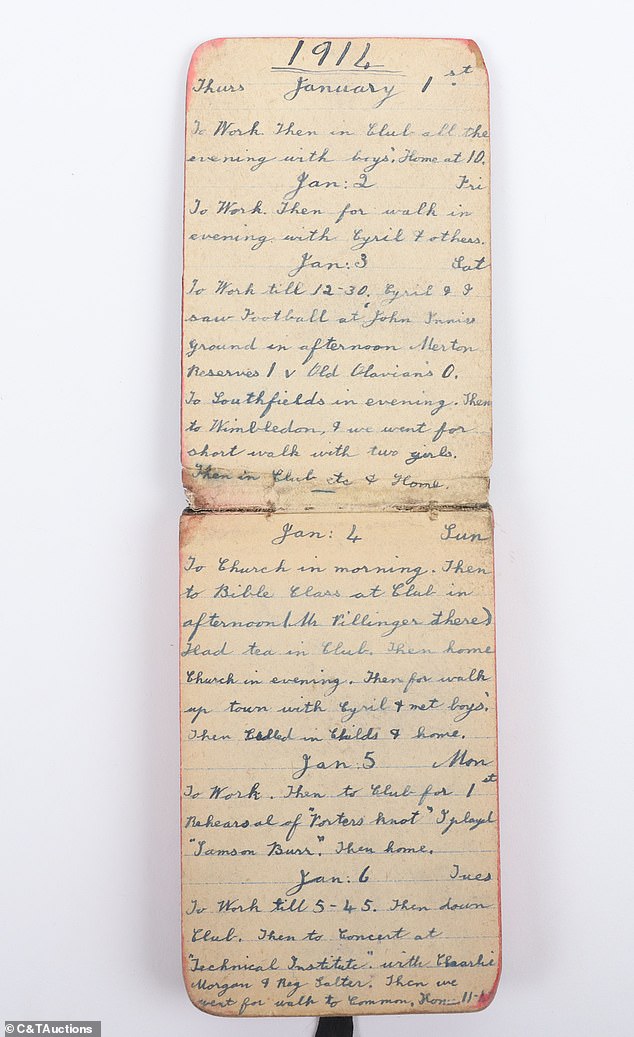 1914
Thurs January 1st
To Work. Then in Club all the
evening with boys. Home at 10.
Jan: 2 Fri
To Work. Then for walk in
evening with Cyril & others.
Jan: 3 Sat
To Work till 12-30. Cyril & I
saw Football at "John Innis
ground in afternoon Merton
Reserves 1 v Old Olavians 0.
To Southfields in evening. Then
to Wimbledon, & we went for
short walk with two girls.
Then in Club etc & Home.
Jan: 4 Sun
To Church in morning. Then
to Bible Class at Club in
afternoon (Mr Pillinger there)
Had tea in Club. Then home
Church in evening. Then for walk
up town with Cyril & met boys.
Then Called in Childs & home.
Jan: 5 Mon
To Work. Then to Club for 1st
Rehearsal of "Porters Knot" I played
"Samson Burr." Then home.
Jan: 6 Tues
To Work till 5-45. Then down
Club. Then to Concert at
"Technical Institute" with Charlie
Morgan & Reg Salter. Then we
went for walk to Common. Hom
C&TAuctions